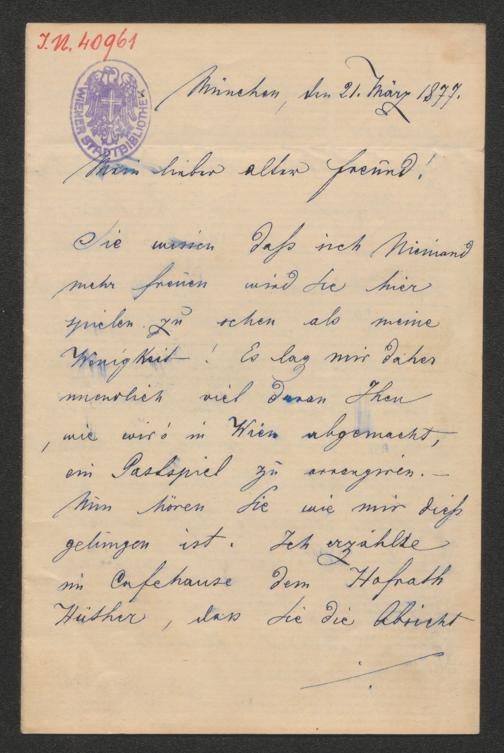 J.N. 40961
WIENER STADTBIBLIOTHEK
München, den 21. März 1877.
Mein lieber alter Freund!
Sie wissen daß sich Niemand
mehr freuen wird Sie hier
spielen zu sehen als meine
Wenigkeit! Es lag mir daher
unendlich viel daran Ihen
, wie wir's in Wien abgemacht,
ein Gastspiel zu arrengiren. —
Nun hören Sie wie mir dieß
gelungen ist. Ich erzählte
im Cafehause dem Hofrath
, dass Sie die Absicht